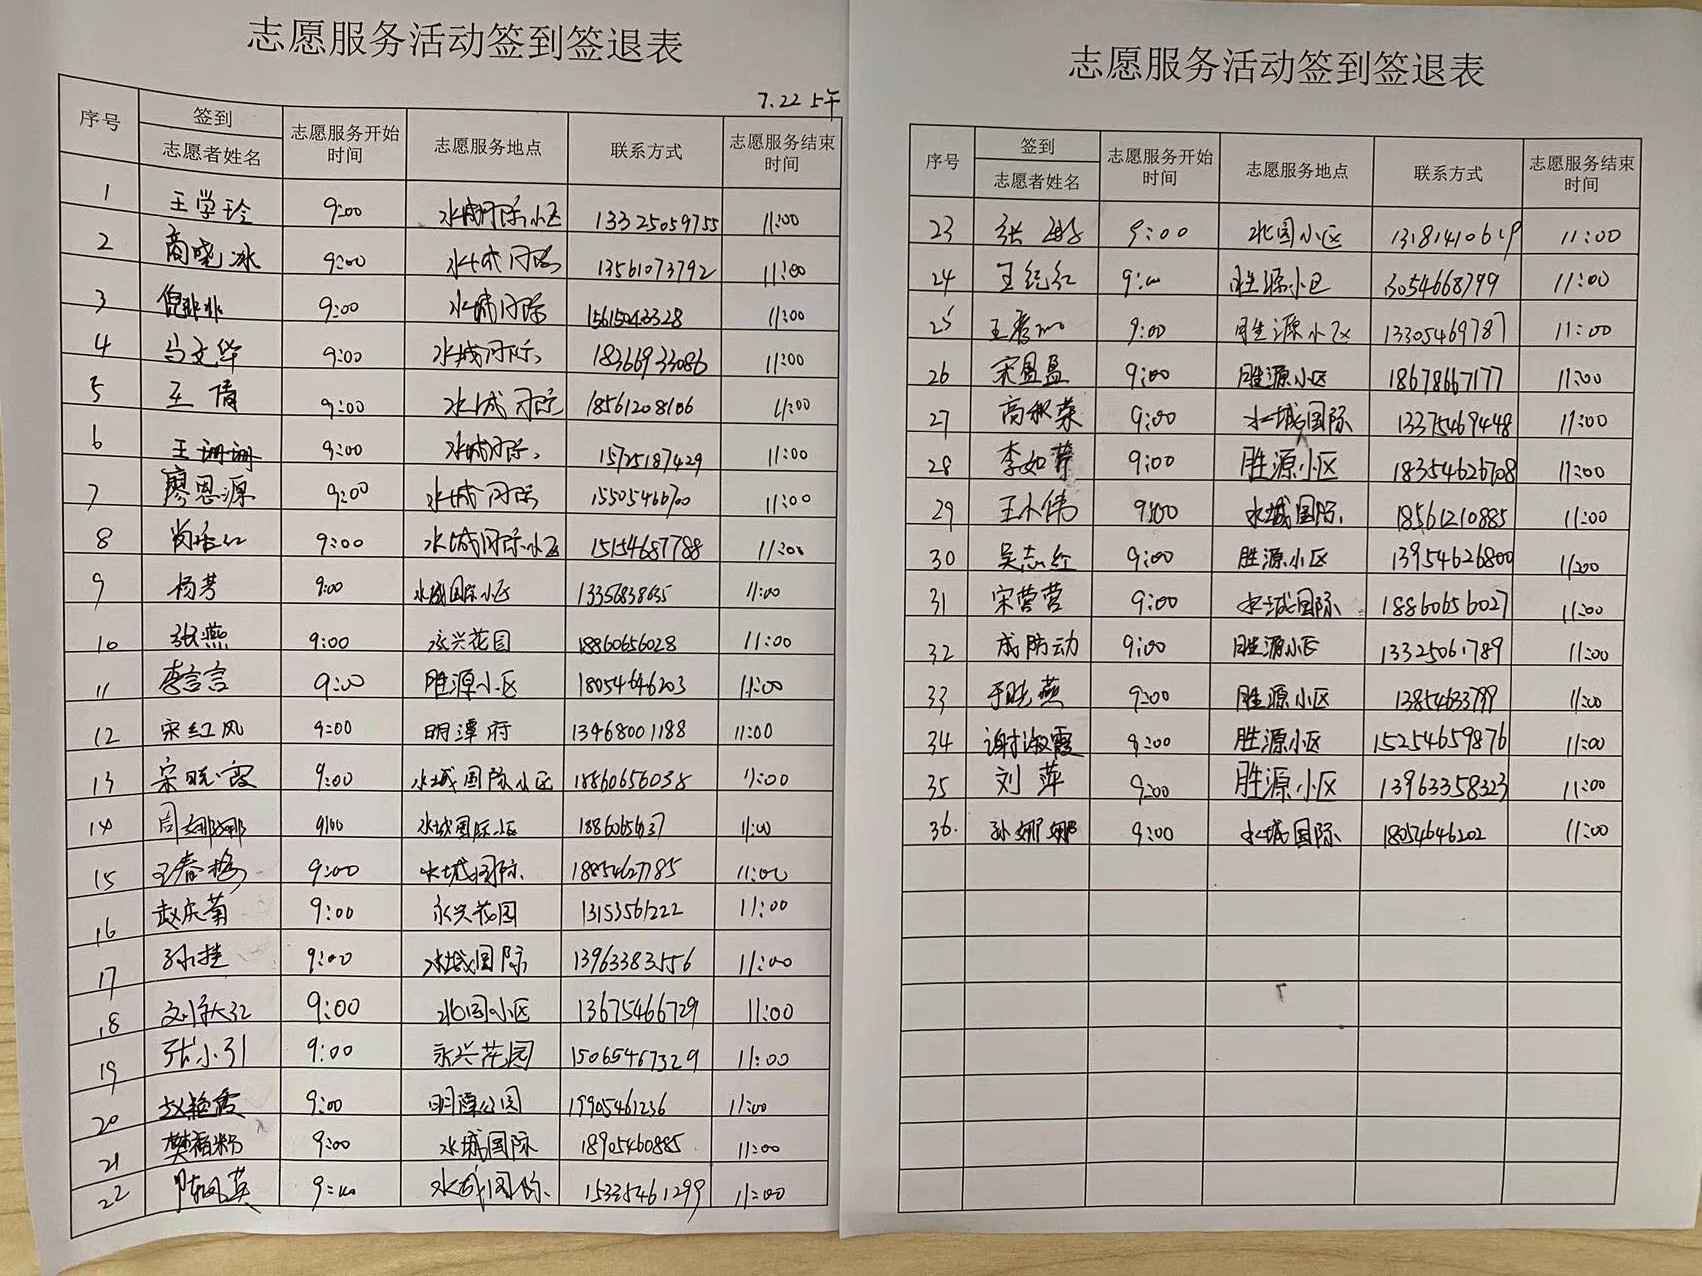 志愿服务活动签到签退表
7.22 上午
序号 签到 志愿者姓名 志愿服务开始时间 志愿服务地点 联系方式 志愿服务结束时间
1 王学玲 9:00 水城国际小区 13325059755 11:00
2 商晓冰 9:00 水城国际 13561073792 11:00
3 倪非非 9:00 水城国际 15615043328 11:00
4 马文华 9:00 水城国际 18366933086 11:00
5 王倩 9:00 水城国际 18561208106 11:00
6 王珊珊 9:00 水城国际 15725187429 11:00
7 廖恩源 9:00 水城国际 15505466700 11:00
8 9:00 水城国际小区 15154687788 11:00
9 杨芳 9:00 水城国际小区 13356838635 11:00
10 张燕 9:00 永兴花园 18860656028 11:00
11 李言言 9:00 胜源小区 18054646203 11:00
12 宋红风 9:00 明潭府 13468001188 11:00
13 宋晓霞 9:00 水城国际小区 18860656038 11:00
14 周娜娜 9:00 水城国际小区 11:00
15 王春梅 9:00 水城国际 18854627785 11:00
16 赵庆菊 9:00 永兴花园 13153561222 11:00
17 孙桂 9:00 水城国际 13963383556 11:00
18 9:00 北园小区 13675466729 11:00
19 张小引 9:00 永兴花园 15065467329 11:00
20 赵艳霞 9:00 明潭公园 19905461236 11:00
21 樊福粉 9:00 水城国际 18905460885 11:00
22 陈凤英 9:00 水城国际 15335461299 11:00
志愿服务活动签到签退表
序号 签到 志愿者姓名 志愿服务开始时间 志愿服务地点 联系方式 志愿服务结束时间
23 张 9:00 北园小区 13181410619 11:00
24 王纪红 9:00 胜源小区 13054668799 11:00
25 王秀 9:00 胜源小区 13305469787 11:00
26 宋盈盈 9:00 胜源小区 18678667177 11:00
27 高秋荣 9:00 水城国际 13375469448 11:00
28 李如苹 9:00 胜源小区 18354626708 11:00
29 王小伟 9:00 水城国际 18561210885 11:00
30 吴志红 9:00 胜源小区 13954626800 11:00
31 宋营营 9:00 水城国际 18860656027 11:00
32 成防动 9:00 胜源小区 13325061789 11:00
33 于晓燕 9:00 胜源小区 13854633799 11:00
34 谢淑霞 9:00 胜源小区 15254659876 11:00
35 刘萍 9:00 胜源小区 13963358323 11:00
36. 孙娜娜 9:00 水城国际 18054646202 11:00